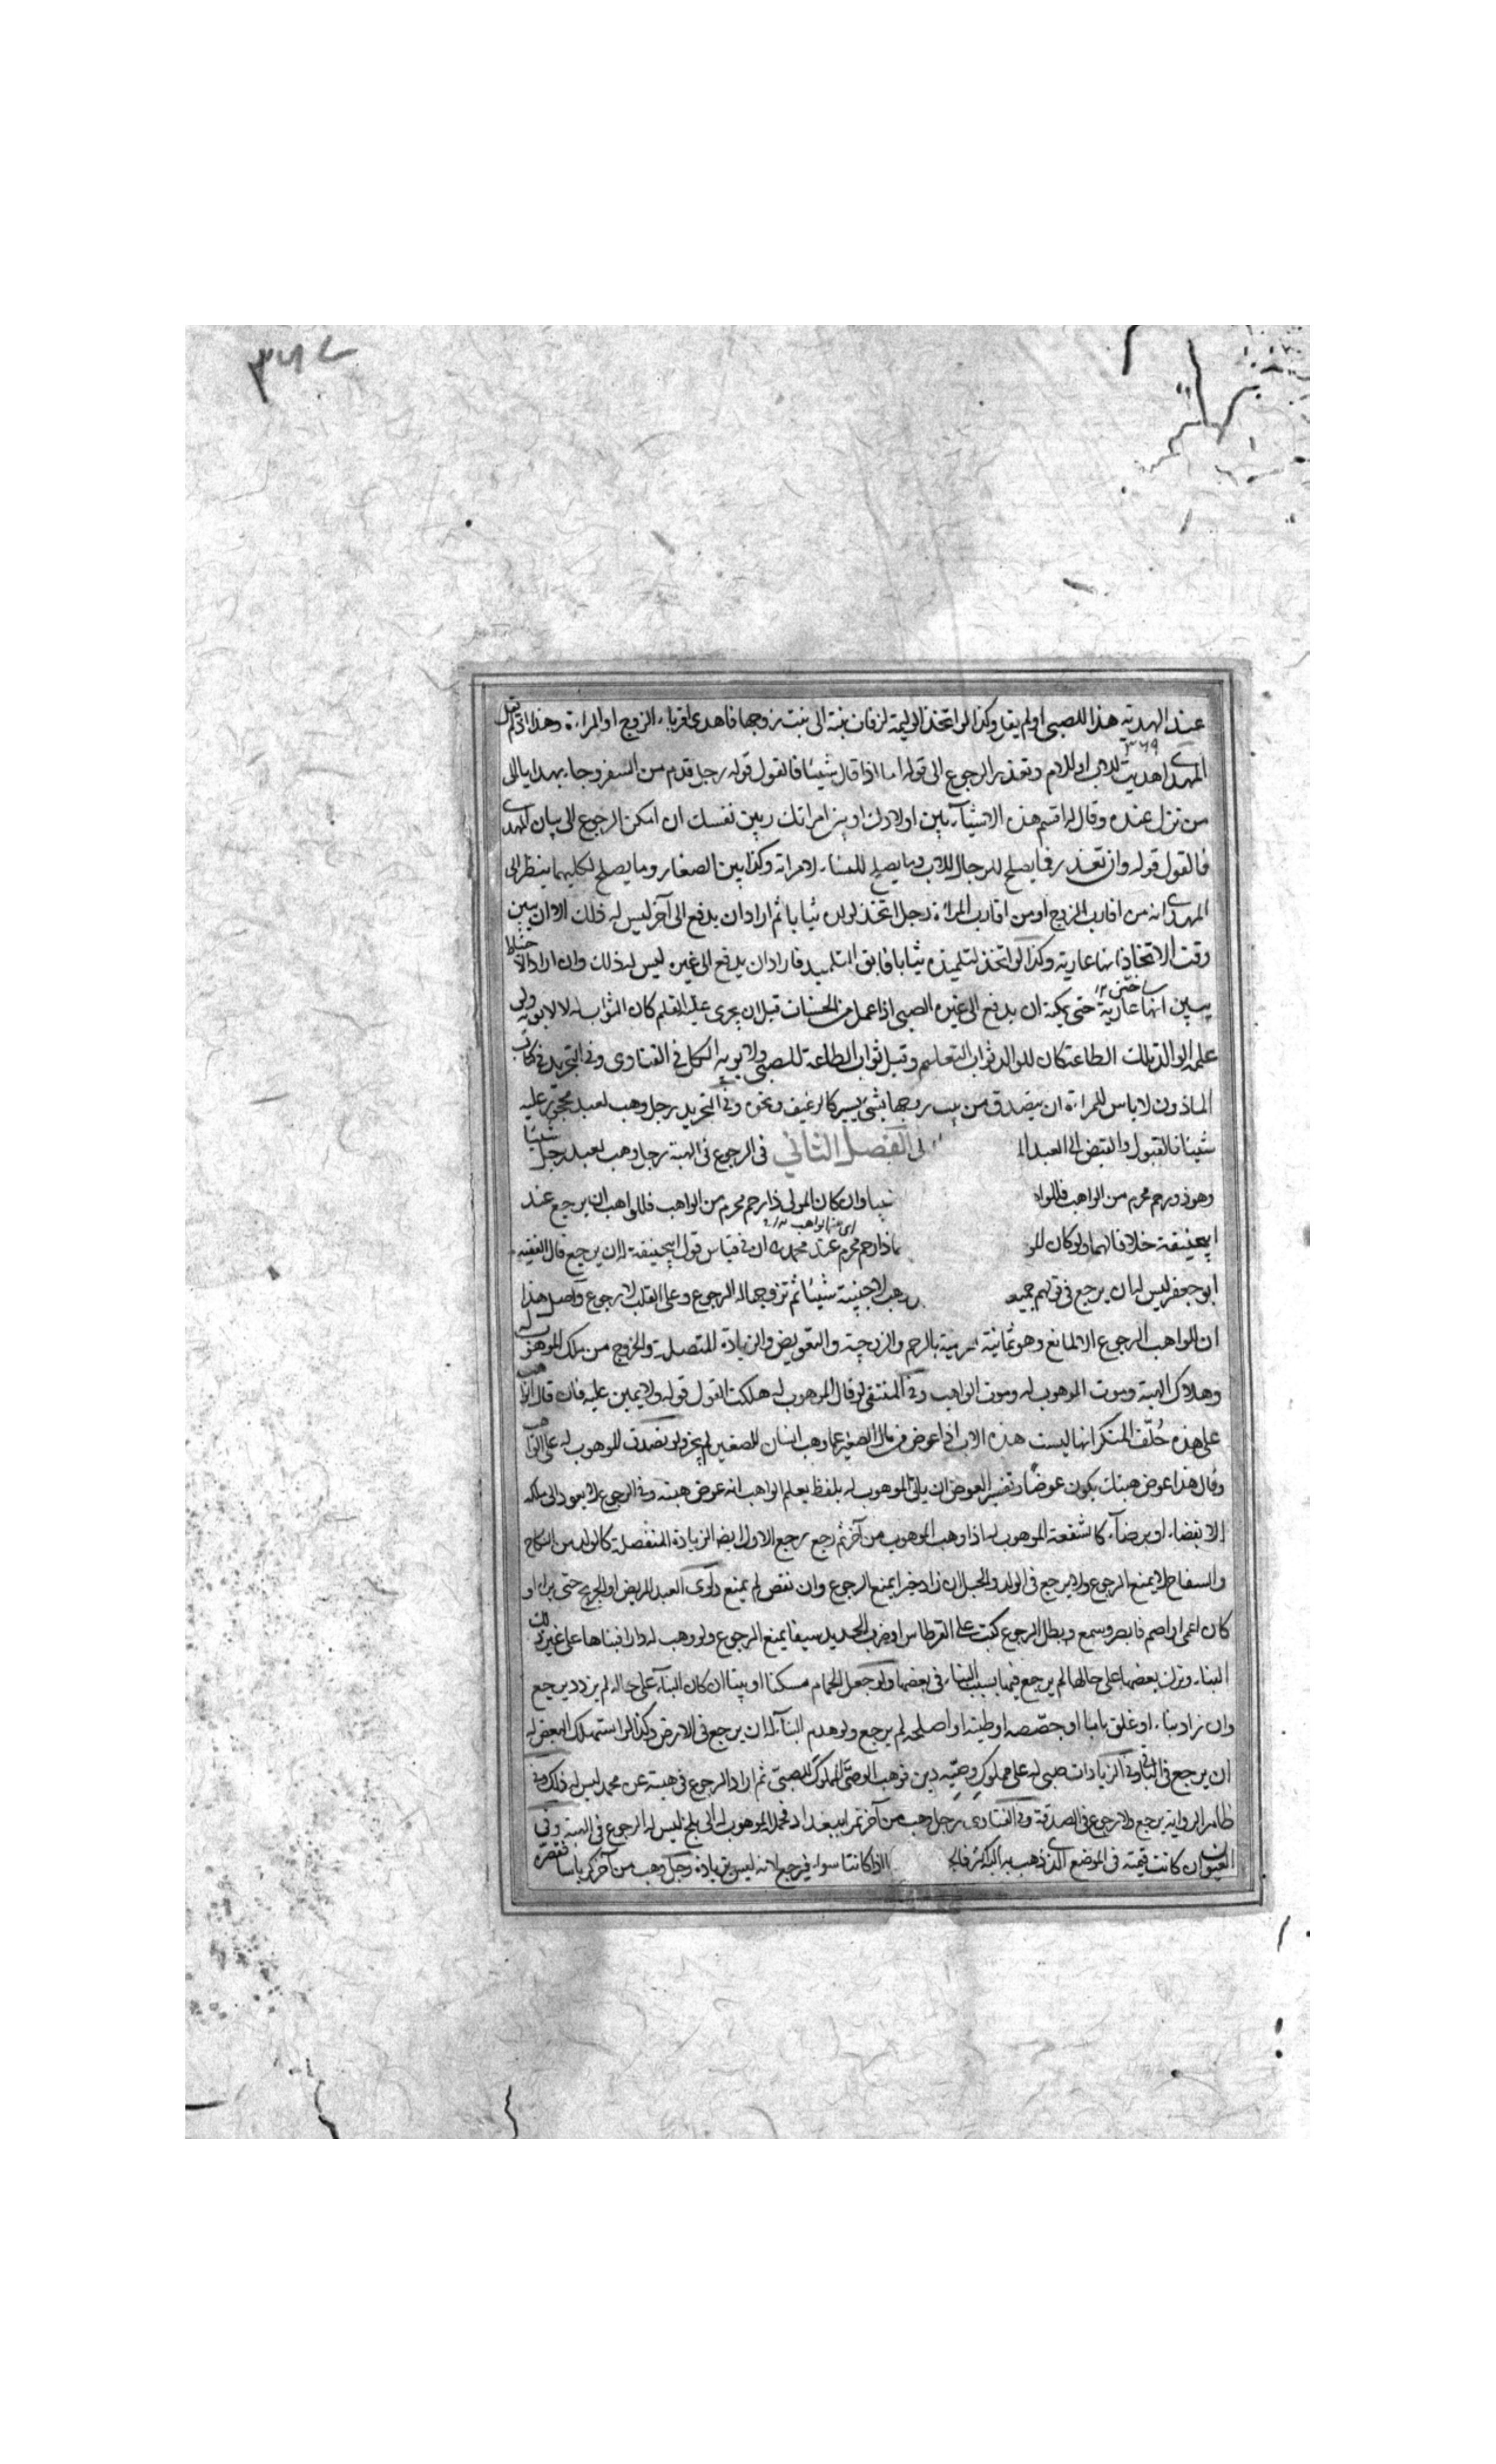 ٣٦٧
عند الهدية هذا للصبي او لم يقل وكذا لو اتخذ الوليمة لزفاف بنته الى بيت زوجها فاهدى اقرباء الزوج او المراءة وهذا اذا لم يقل
٣٦٩
المهدي اهديت للاب او للام وتعذر الرجوع الى قوله اما اذا قال شيئا فالقول قوله رجل قدم من السفر وجاء بهدايا الى
من نزل عنده وقال له اقسم هذه الاشياء بين اولادك او بين امراتك وبين نفسك ان امكن الرجوع الى بيان المهدي
فالقول قوله وان تعذر فما يصلح للرجال للاب وما يصلح للنساء لامراته وكذا بين الصغار وما يصلح لكليهما ينظر الى
المهدي انه من اقارب الزوج او من اقارب المراة رجل اتخذ لولده ثيابا ثم اراد ان يدفع الى آخر ليس له ذلك الا ان يبين
وقت الاتخاذ انها عارية وكذا لو اتخذ لتلميذه ثيابا فابق التلميذ فاراد ان يدفع الى غيره ليس له ذلك وان اراد الاحتياط
يبين انها عارية حتى يمكنه ان يدفع الى غيره الصبي اذا عمل من الحسنات قبل ان يجرى عليه القلم كان الثواب له لا لابويه ولو
علمه الوالد تلك الطاعة كان للوالد ثواب التعليم وقيل ثواب الطاعة للصبي ولابويه الكل في الفتاوى وفي التجريد في كتاب
الماذون لا باس للمراءة ان يتصدق من بيت زوجها بشي يسير كالرغيف ونحوه وفي التجريد رجل وهب لعبد محجور عليه
شيئا فالقبول والقبض الى العبد الفصل الثاني في الرجوع في الهبة رجل وهب لعبد رجل شيئا
وهو ذو رحم محرم من الواهب فللواه وان كان المولى ذا رحم محرم من الواهب فللواهب ان يرجع عند
ابيحنيفة خلافا لهما ولو كان ذا رحم محرم عند محمد ان في قياس قول ابيحنيفة له ان يرجع قال الفقيه
ابو جعفر ليس له ان يرجع في قولهم وهب لاجنبية شيئا ثم تزوجها له الرجوع وعلى القلب لا رجوع واصل هذا
ان للواهب الرجوع الا لمانع وهو ثمانية بالرحم والزوجية والتعويض والزيادة المتصلة والخروج من ملك الموهوب له
وهلاك الهبة وموت الموهوب له وموت الواهب وفي المنتقى لو قال الموهوب له هلكت القول قوله ولا يمين عليه فان قال الواهب
على هذه حُلّف المنكر انها ليست هذه الاب اذا عوض من مال الصغير عما وهب انسان للصغير لم يجز ولو تصدق الموهوب له على الواهب
وقال هذا عوض هبتك يكون عوضا وتفسير العوض ان ياتي الموهوب له بلفظ يعلم الواهب انه عوض هبته وفي الرجوع لا يعود الى ملكه
الا بقضاء او برضاء كالشفعة الموهوب له اذا وهب الموهوب من آخر ثم رجع رجع الاول ايضا الزيادة المنفصلة كالولد من النكاح
والسفاح لا يمنع الرجوع ولا يرجع في الولد والحبل ان زاد خيرا يمنع الرجوع وان نقص لم يمنع العبد المريض او الجريح حتى برا او
كان اعمى او اصم فابصر وسمع ويبطل الرجوع كتب على القرطاس او ضرب الحديد سيفا يمنع الرجوع ولو وهب له دارا فبناها على غير ذلك
البناء وترك بعضها على حالها لم يرجع فيها بسبب البناء في بعضها ولو جعل الحمام مسكنا او بيتا ان كان البناء على حاله لم يزد يرجع
وان زاد بناء او غلق بابا او جصصه او طينه او اصلحه لم يرجع ولو هدم البناء له ان يرجع في الارض وكذا لو استهلك البعض له
ان يرجع في الباقي وفي الزيادات صبي له على مملوك وصيه دين فوهب الوصي المملوك للصبي ثم اراد الرجوع في هبته عن محمد ليس له ذلك وفي
ظاهر الرواية يرجع ولا رجوع في الصدقة وفي الفتاوى رجل وهب من آخر تمرا ببغداد فحمله الموهوب له الى بلخ ليس له الرجوع في الهبة وفي
العيون ان كانت قيمته في الموضع الذي ذهب به اليه اكثر اذا كانتا سواء فيرجع لانه ليس بزيادة رجل وهب من آخر كرباسا فقصره